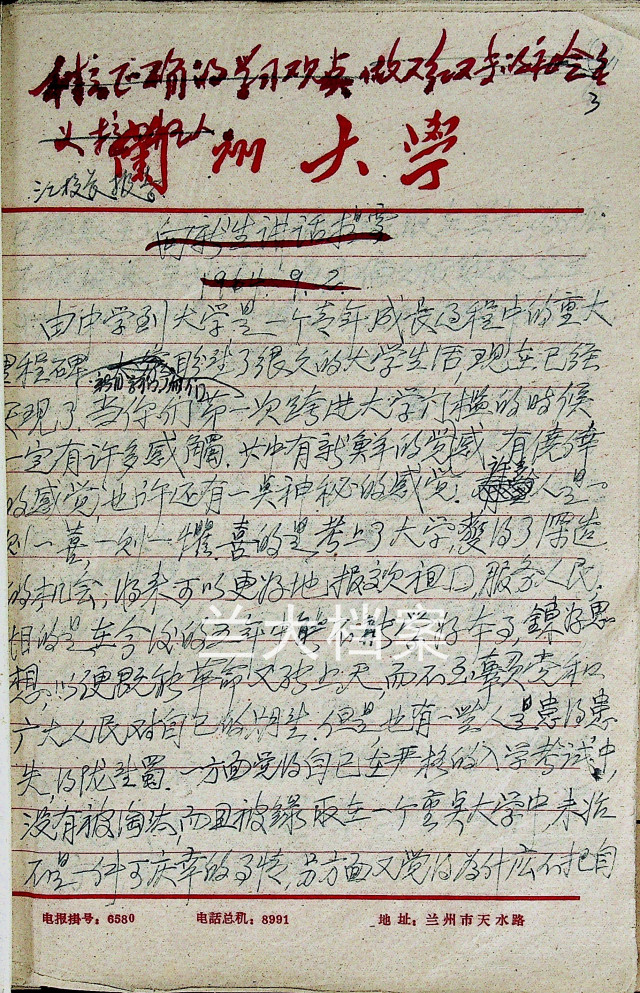 树立正确的学习观点做又红又专的社会主
3
义接班人
蘭州大学
江校长报告
向新生讲话提要
1964.9.2.
由中学到大学是一个青年成长过程中的重大
里程碑。盼望了很久的大学生活,现在已经
实现了。当你们第一次跨进大学门槛的时候
一定有许多感觸.其中有新鲜的觉感,有侥倖
的感觉,也许还有一点神秘的感觉.许多人是一
则一喜,一则一懼.喜的是考上了大学,獲得了深造
的机会,将来可以更好地报效祖囗,服务人民.
兰大档案
惧的是在今后的五年中能不能学好本事鍊好思
想,以便既能革命又能上天,而不至辜負党和
广大人民对自己的期望.但是也有一些人是患得患
失,得陇望蜀.一方面觉得自己在严格的入学考试中,
没有被淘汰,而且被錄取在一个重点大学中,未始
不是一件可庆幸的事情,另方面又觉得为什么不把自
电报掛号:6580 电話总机:8991 地址:兰州市天水路